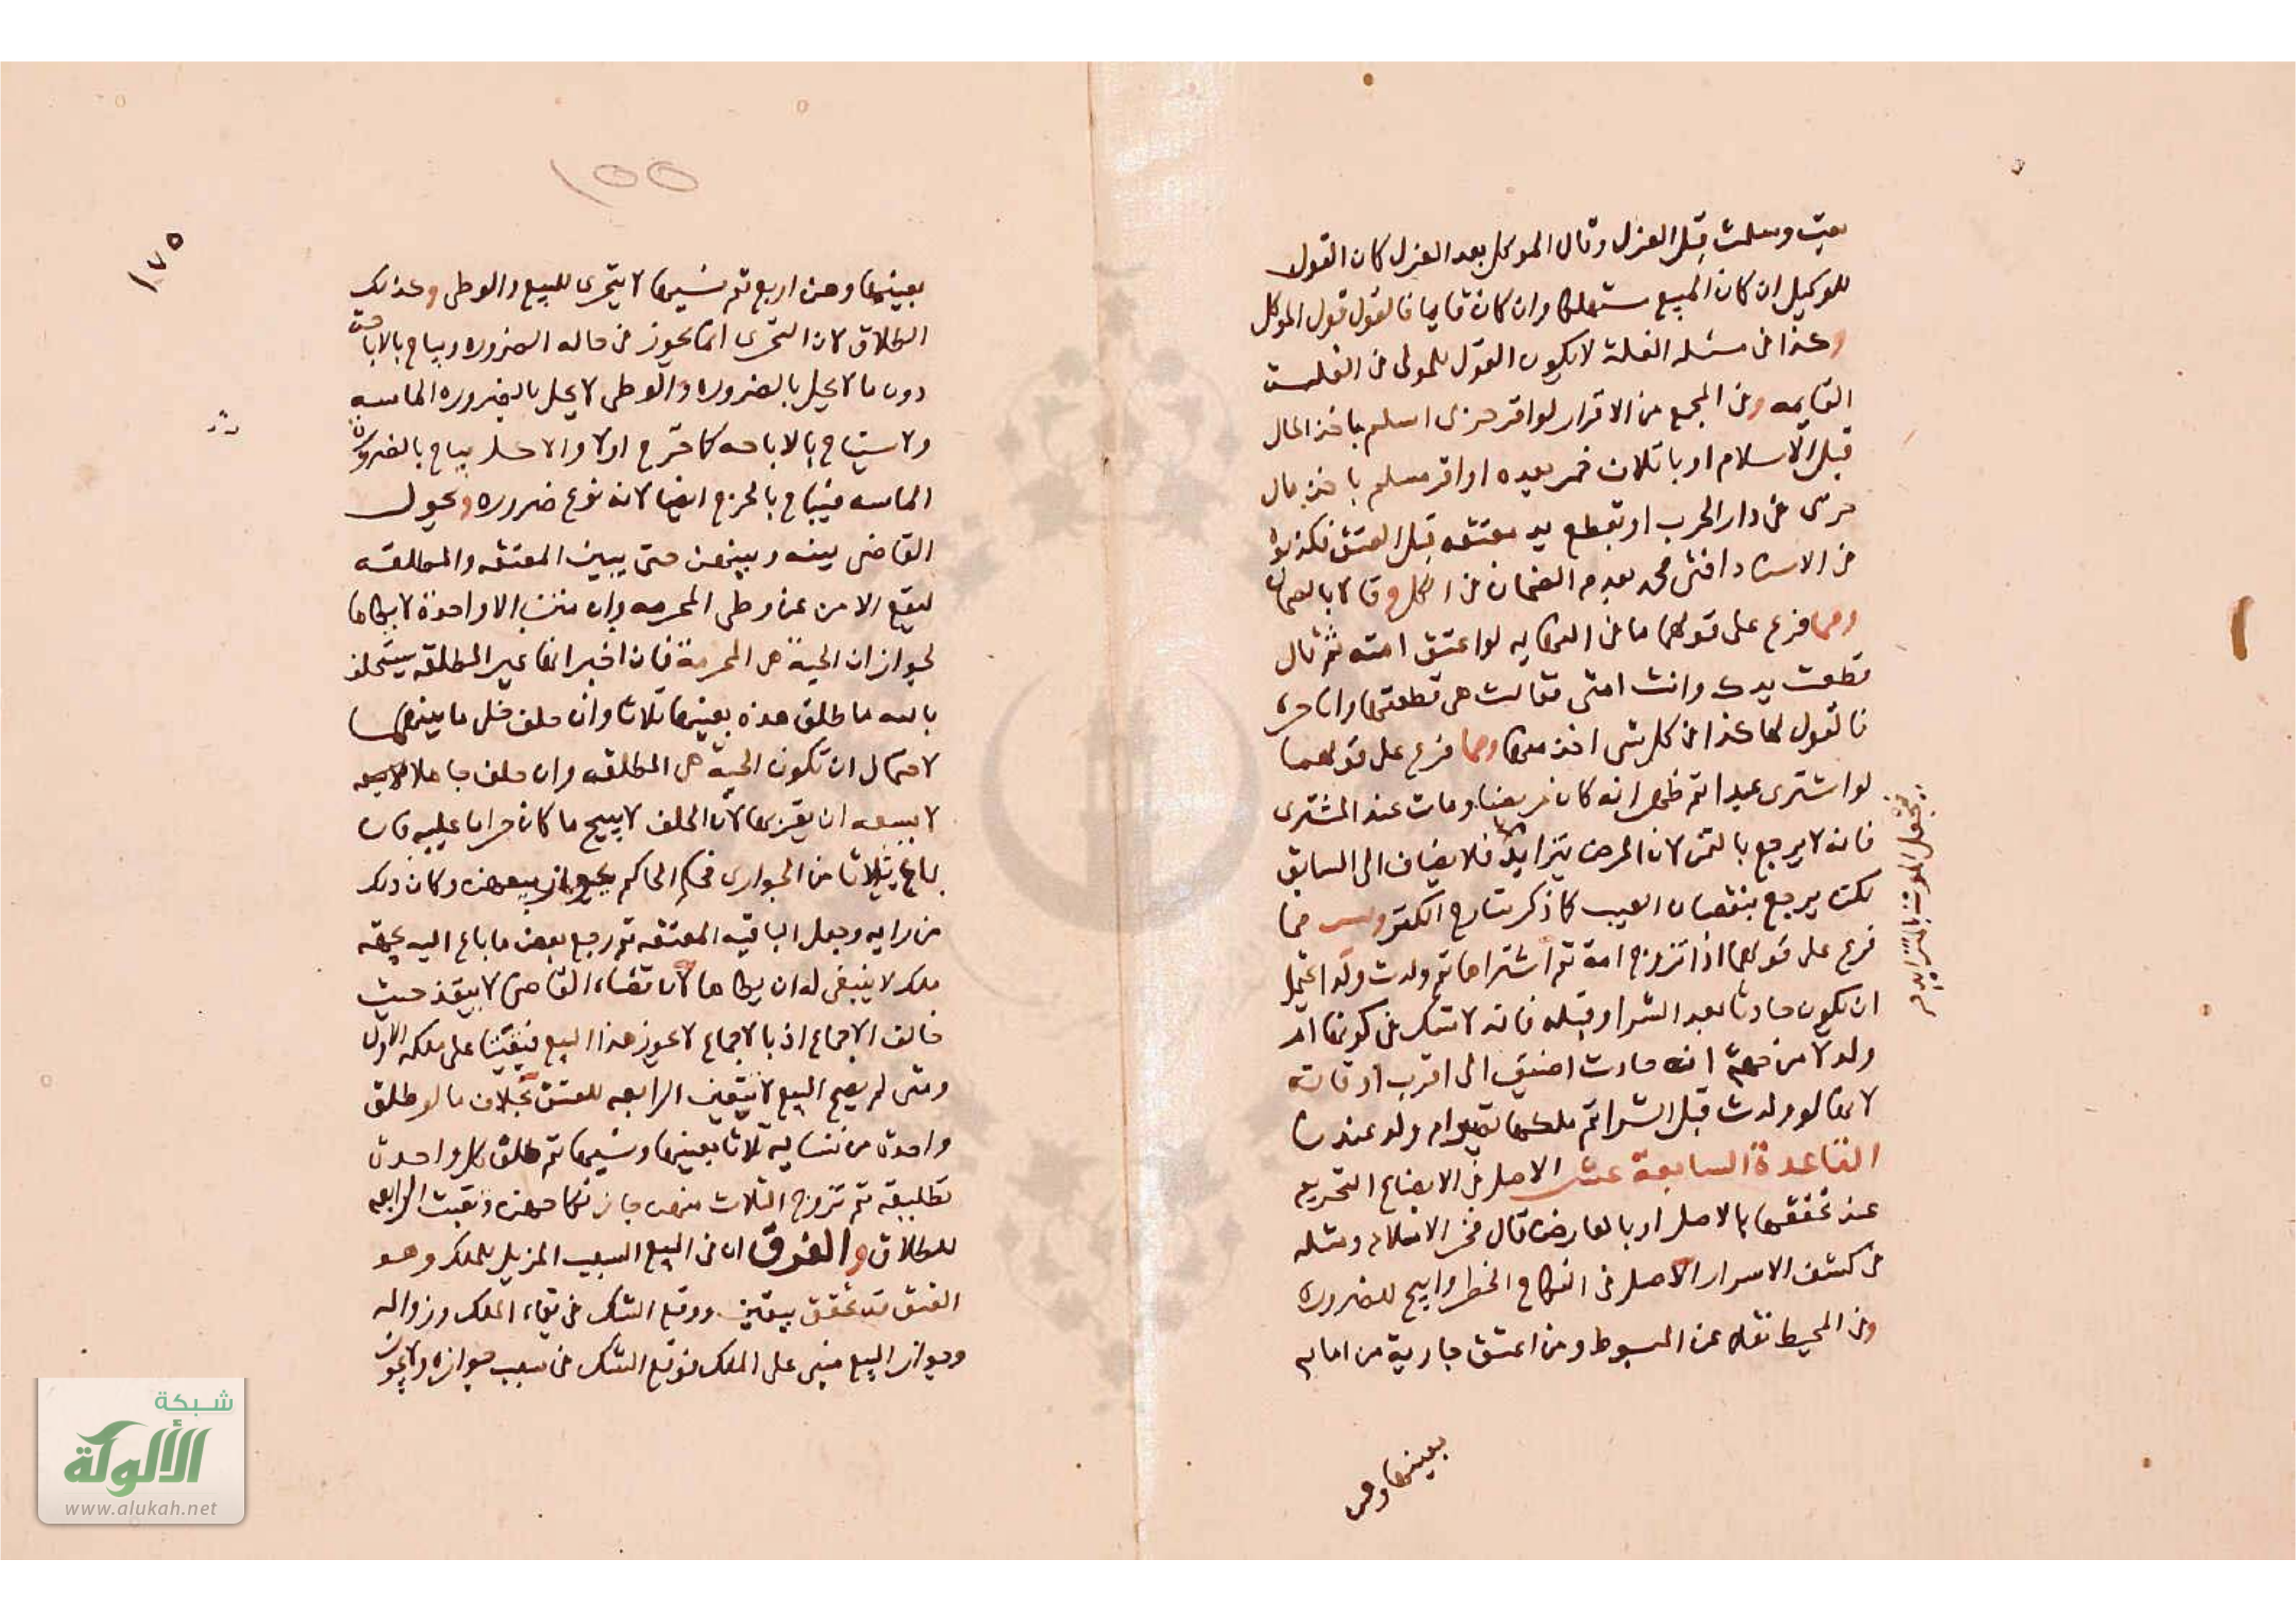 بعت وسلمت قبل العزل وقال الموكل بعد العزل كان القول
للوكيل ان كان المبيع مستهلكا وان كان قايما فالقول قول الموكل
وكذا في مسئله الغلة لا يكون القول للمولى في الغلة
القايمه وفي المجمع من الاقرار لو اقر حربى اسلم باخذ المال
قبل الاسلام او باتلاف خمر بعده او اقر مسلم باخذ مال
حربى في دار الحرب او بقطع يد معتقه قبل العتق فكذبوه
في الاسناد افتى محمد بعدم الضمان في الكل وقالا بالضمان
ومما فرع على قولهما ما في النهايه لو اعتق امته ثم قال
قطعت يدك وانت امتى فقالت هى قطعتها وانا حره
فالقول لها وكذا في كل شى اخذ منها ومما فرع على قولهما
لو اشترى عبدا ثم ظهر انه كان مريضا ومات عند المشترى
فانه لا يرجع بالثمن لان المرض يتزايد فلا يضاف الى السابق
لكن يرجع بنقصان العيب كما ذكر شارح الكنز وليس مما
فرع على قولهما اذا تزوج امة ثم اشتراها ثم ولدت ولدا يحتمل
ان يكون حادثا بعد الشرا او قبله فانه لا شك في كونها ام
ولد لا من جهة انه حادث اضيف الى اقرب اوقاته
لانها لو ولدت قبل الشرا ثم ملكها تصير ام ولد عندنا
القاعدة السابعة عشر الاصل في الابضاع التحريم
قال فخر الاسلام ومثله
في كشف الاسرار الاصل في النكاح الحظر وابيح للضرورة
وفي المحيط نقله عن المبسوط ومن اعتق جارية من امايه
بعينها وهن
فيحصل الموت بالزايد
١٥٥
١٧٥
بعينها وهن اربع ثم نسيها لا يتحرى للبيع والوطى وكذلك
الطلاق لان التحرى انما يجوز في حاله الضروره ويباح بالاباحة
دون ما لا يحل بالضروره والوطى لا يحل بالضروره الماسه
ولا يستباح بالاباحه كما في الفرج اولا والاكل يباح بالضرورة
الماسه فيباح بالحرج ايضا لانه نوع ضروره ويحول
القاضى بينه وبينهن حتى يبين المعتقه والمطلقه
ليقع الامن عن وطى المحرمه وان متن الا واحدة لا يطاها
لجواز ان الحية هى المحرمة فان اخبر انها غير المطلقه يستحلف
بالله ما طلق هذه بعينها ثلاثا وان حلف خلى ما بينهما
لاحتمال ان تكون الحية هى المطلقه وان حلف جاهلا
لا يسعه ان يقربها لان الحلف لا يبيح ما كان حراما عليه فان
باع ثلاثا من الجوارى فحكم الحاكم بجواز بيعهن وكان ذلك
من رايه وجعل الباقيه المعتقه ثم رجع بعض ما باع اليه بجهه
ملك لا ينبغى له ان يطاها لان قضاء القاضى لا ينفذ حيث
خالف الاجماع اذ بالاجماع لا يجوز هذا البيع فبقيتا على ملكه الاول
ومتى لم يصح البيع لا يتعين الرابعه للعتق بخلاف ما لو طلق
واحدة من نسايه ثلاثا بعينها ونسيها ثم طلق كل واحدة
تطليقه ثم تزوج الثلاث منهن جاز نكاحهن وبقيت الرابعه
للطلاق والفرق ان في البيع السبب المزيل للملك وهو
العتق قد تحقق بيقين ووقع الشك في بقاء الملك وزواله
وجواز البيع مبنى على الملك فوقع الشك في سبب جوازه ولا يجوز
شبكة
الألوكة
www.alukah.net